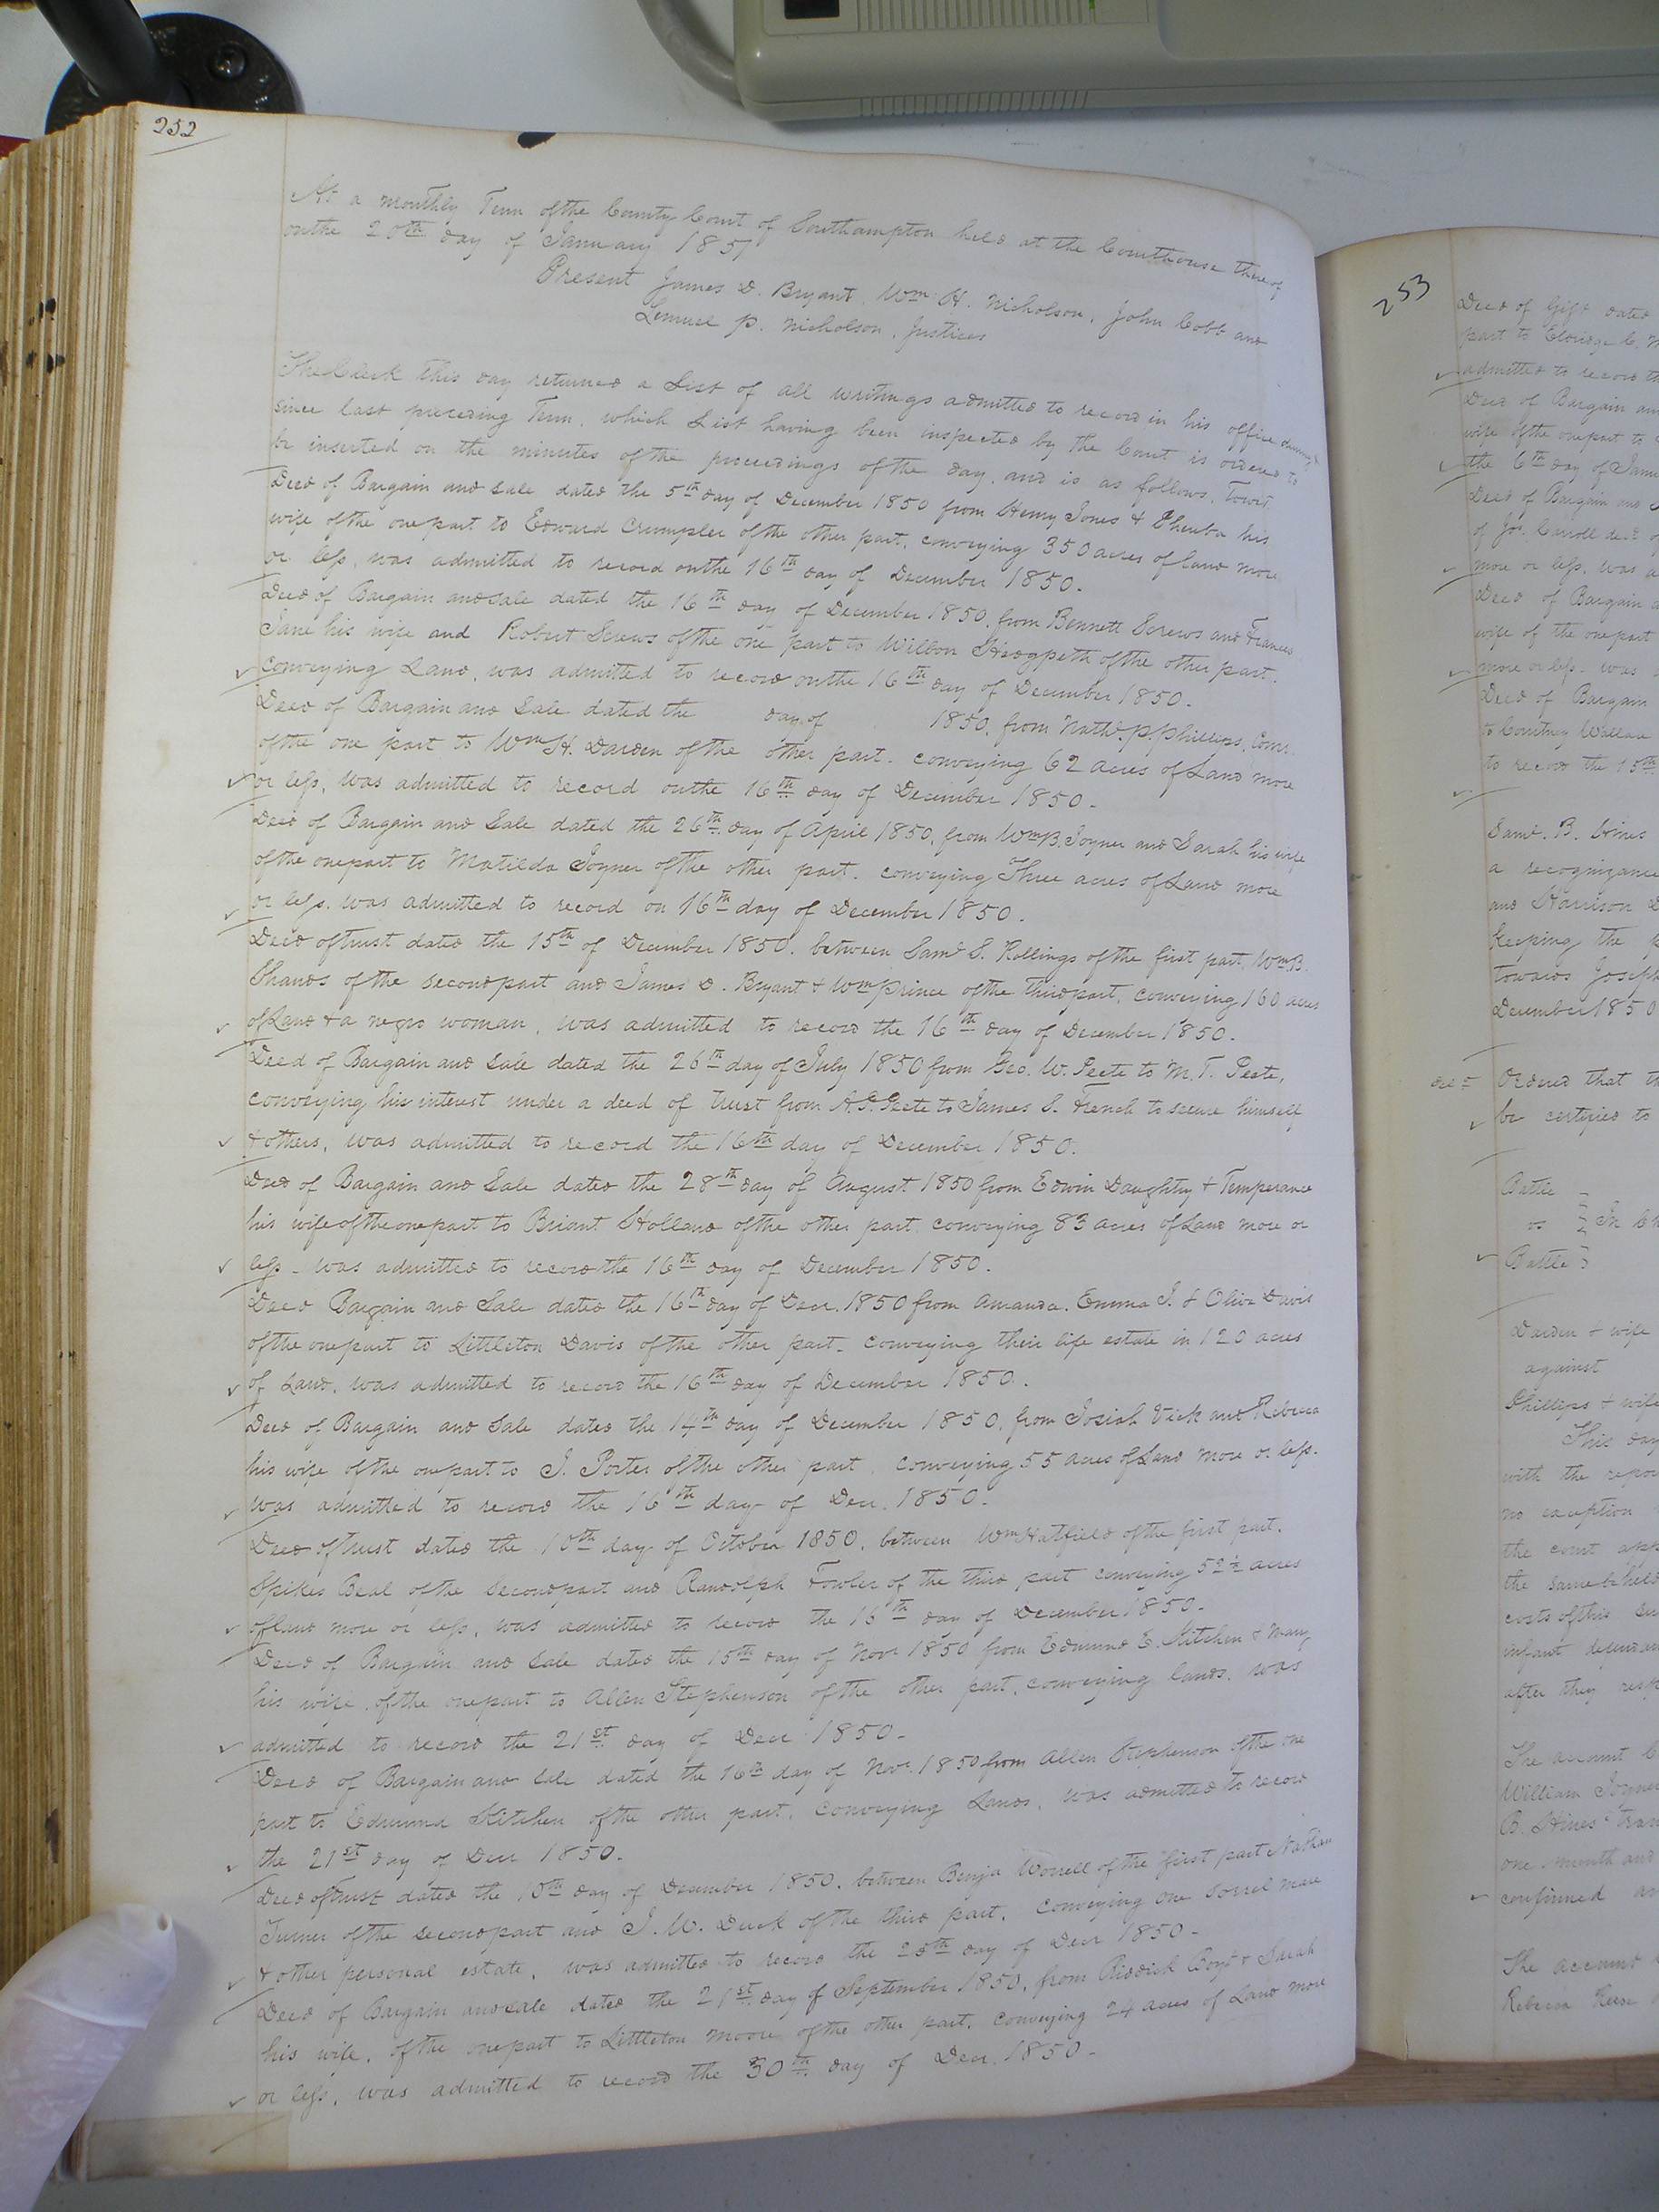 252
At a monthly Term of the County Court of Southampton held at the Courthouse thereof
on the 20th day of January 1851
Present James D. Bryant, Wm H. Nicholson, John Cobb and
Lemuel P. Nicholson, Justices
The Clerk this day returned a List of all writings admitted to record in his office
since last preceding Term, which List having been inspected by the Court is ordered to
be inserted on the minutes of the proceedings of the day, and is as follows, Towit.
Deed of Bargain and sale dated the 5th day of December 1850 from Henry Jones & his
wife of the one part to Edward Crumpler of the other part, conveying 350 acres of land more
or less, was admitted to record on the 16th day of December 1850.
Deed of Bargain and sale dated the 16th day of December 1850, from Bennett Screws and Frances
Jane his wife and Robert Screws of the one part to Wilson Hedgpeth of the other part.
conveying Land, was admitted to record on the 16th day of December 1850.
Deed of Bargain and Sale dated the day of 1850, from Nathl. P. Phillips, Comr.
of the one part to Wm H. Darden of the other part. conveying 62 acres of Land more
or less, was admitted to record on the 16th day of December 1850.
Deed of Bargain and Sale dated the 26th day of April 1850, from Wm B. Joyner and Sarah his wife
of the one part to Matilda Joyner of the other part. conveying Three acres of Land more
or less. was admitted to record on 16th day of December 1850.
Deed of trust dated the 15th of December 1850. between Saml S. Rollings of the first part, Wm B.
Shands of the second part and James D. Bryant & Wm Prince of the third part, conveying 160 acres
of Land & a negro woman, was admitted to record the 16th day of December 1850.
Deed of Bargain and Sale dated the 26th day of July 1850 from Geo. W. Peete to M. T. Peete,
conveying his interest under a deed of trust from A. G. Peete to James S. French to secure himself
& others, was admitted to record the 16th day of December 1850.
Deed of Bargain and Sale dated the 28th day of August 1850 from Edwin Daughtry & Temperance
his wife of the one part to Briant Holland of the other part conveying 83 acres of Land more or
less - was admitted to record the 16th day of December 1850.
Deed Bargain and Sale dated the 16th day of Decr. 1850 from Amanda. Emma J. & Olive Davis
of the one part to Littleton Davis of the other part. conveying their life estate in 120 acres
of Land, was admitted to record the 16th day of December 1850.
Deed of Bargain and Sale dated the 14th day of December 1850, from Josiah Vick and Rebecca
his wife of the one part to J. Porter of the other part, conveying 55 acres of Land more or less.
was admitted to record the 16th day of Decr. 1850.
Deed of trust dated the 10th day of October 1850, between Wm Hatfield of the first part,
Spikes Beal of the second part and Randolph Fowler of the third part conveying 52½ acres
of land more or less, was admitted to record the 16th day of December 1850.
Deed of Bargain and Sale dated the 15th day of Novr 1850 from Edmund E. Kitchen & Mary
his wife, of the one part to Allen Stephenson of the other part, conveying lands, was
admitted to record the 21st day of Decr 1850.
Deed of Bargain and Sale dated the 16th day of Novr. 1850 from Allen Stephenson of the one
part to Edmund Kitchen of the other part, conveying Lands, was admitted to record
the 21st day of Decr 1850.
Deed of trust dated the 10th day of December 1850, between Benja Worrell of the first part Nathan
Turner of the second part and J. W. Duck of the third part, conveying one sorrel mare
& other personal estate, was admitted to record the 25th day of Decr 1850.
Deed of Bargain and sale dated the 21st day of September 1850, from Riddick Boyt & Sarah
his wife, of the one part to Littleton Moore of the other part, conveying 24 acres of Land more
or less, was admitted to record the 30th day of Decr. 1850.
253
Deed of Gift dated
part to Eldridge C.
admitted to record
Deed of Bargain and
wife of the one part to
the 6th day of
Deed of Bargain and
of Jas. Carroll decd.
more or less, was
Deed of Bargain
wife of the one part
more or less - was
Deed of Bargain
to Courtney Wallace
to record the 15th
Saml. B. Hines
a recognizance
and Harrison
keeping the
towards Joseph
December 1850
Ordered that
be certified to
Battle
vs
Battle
Darden & wife
against
Phillips & wife
This day
with the
no exception
the court
the same be held
costs of this
infant
after they
The account
William Joyner
B. Hines
one month and
confirmed
The account
Rebecca Reese